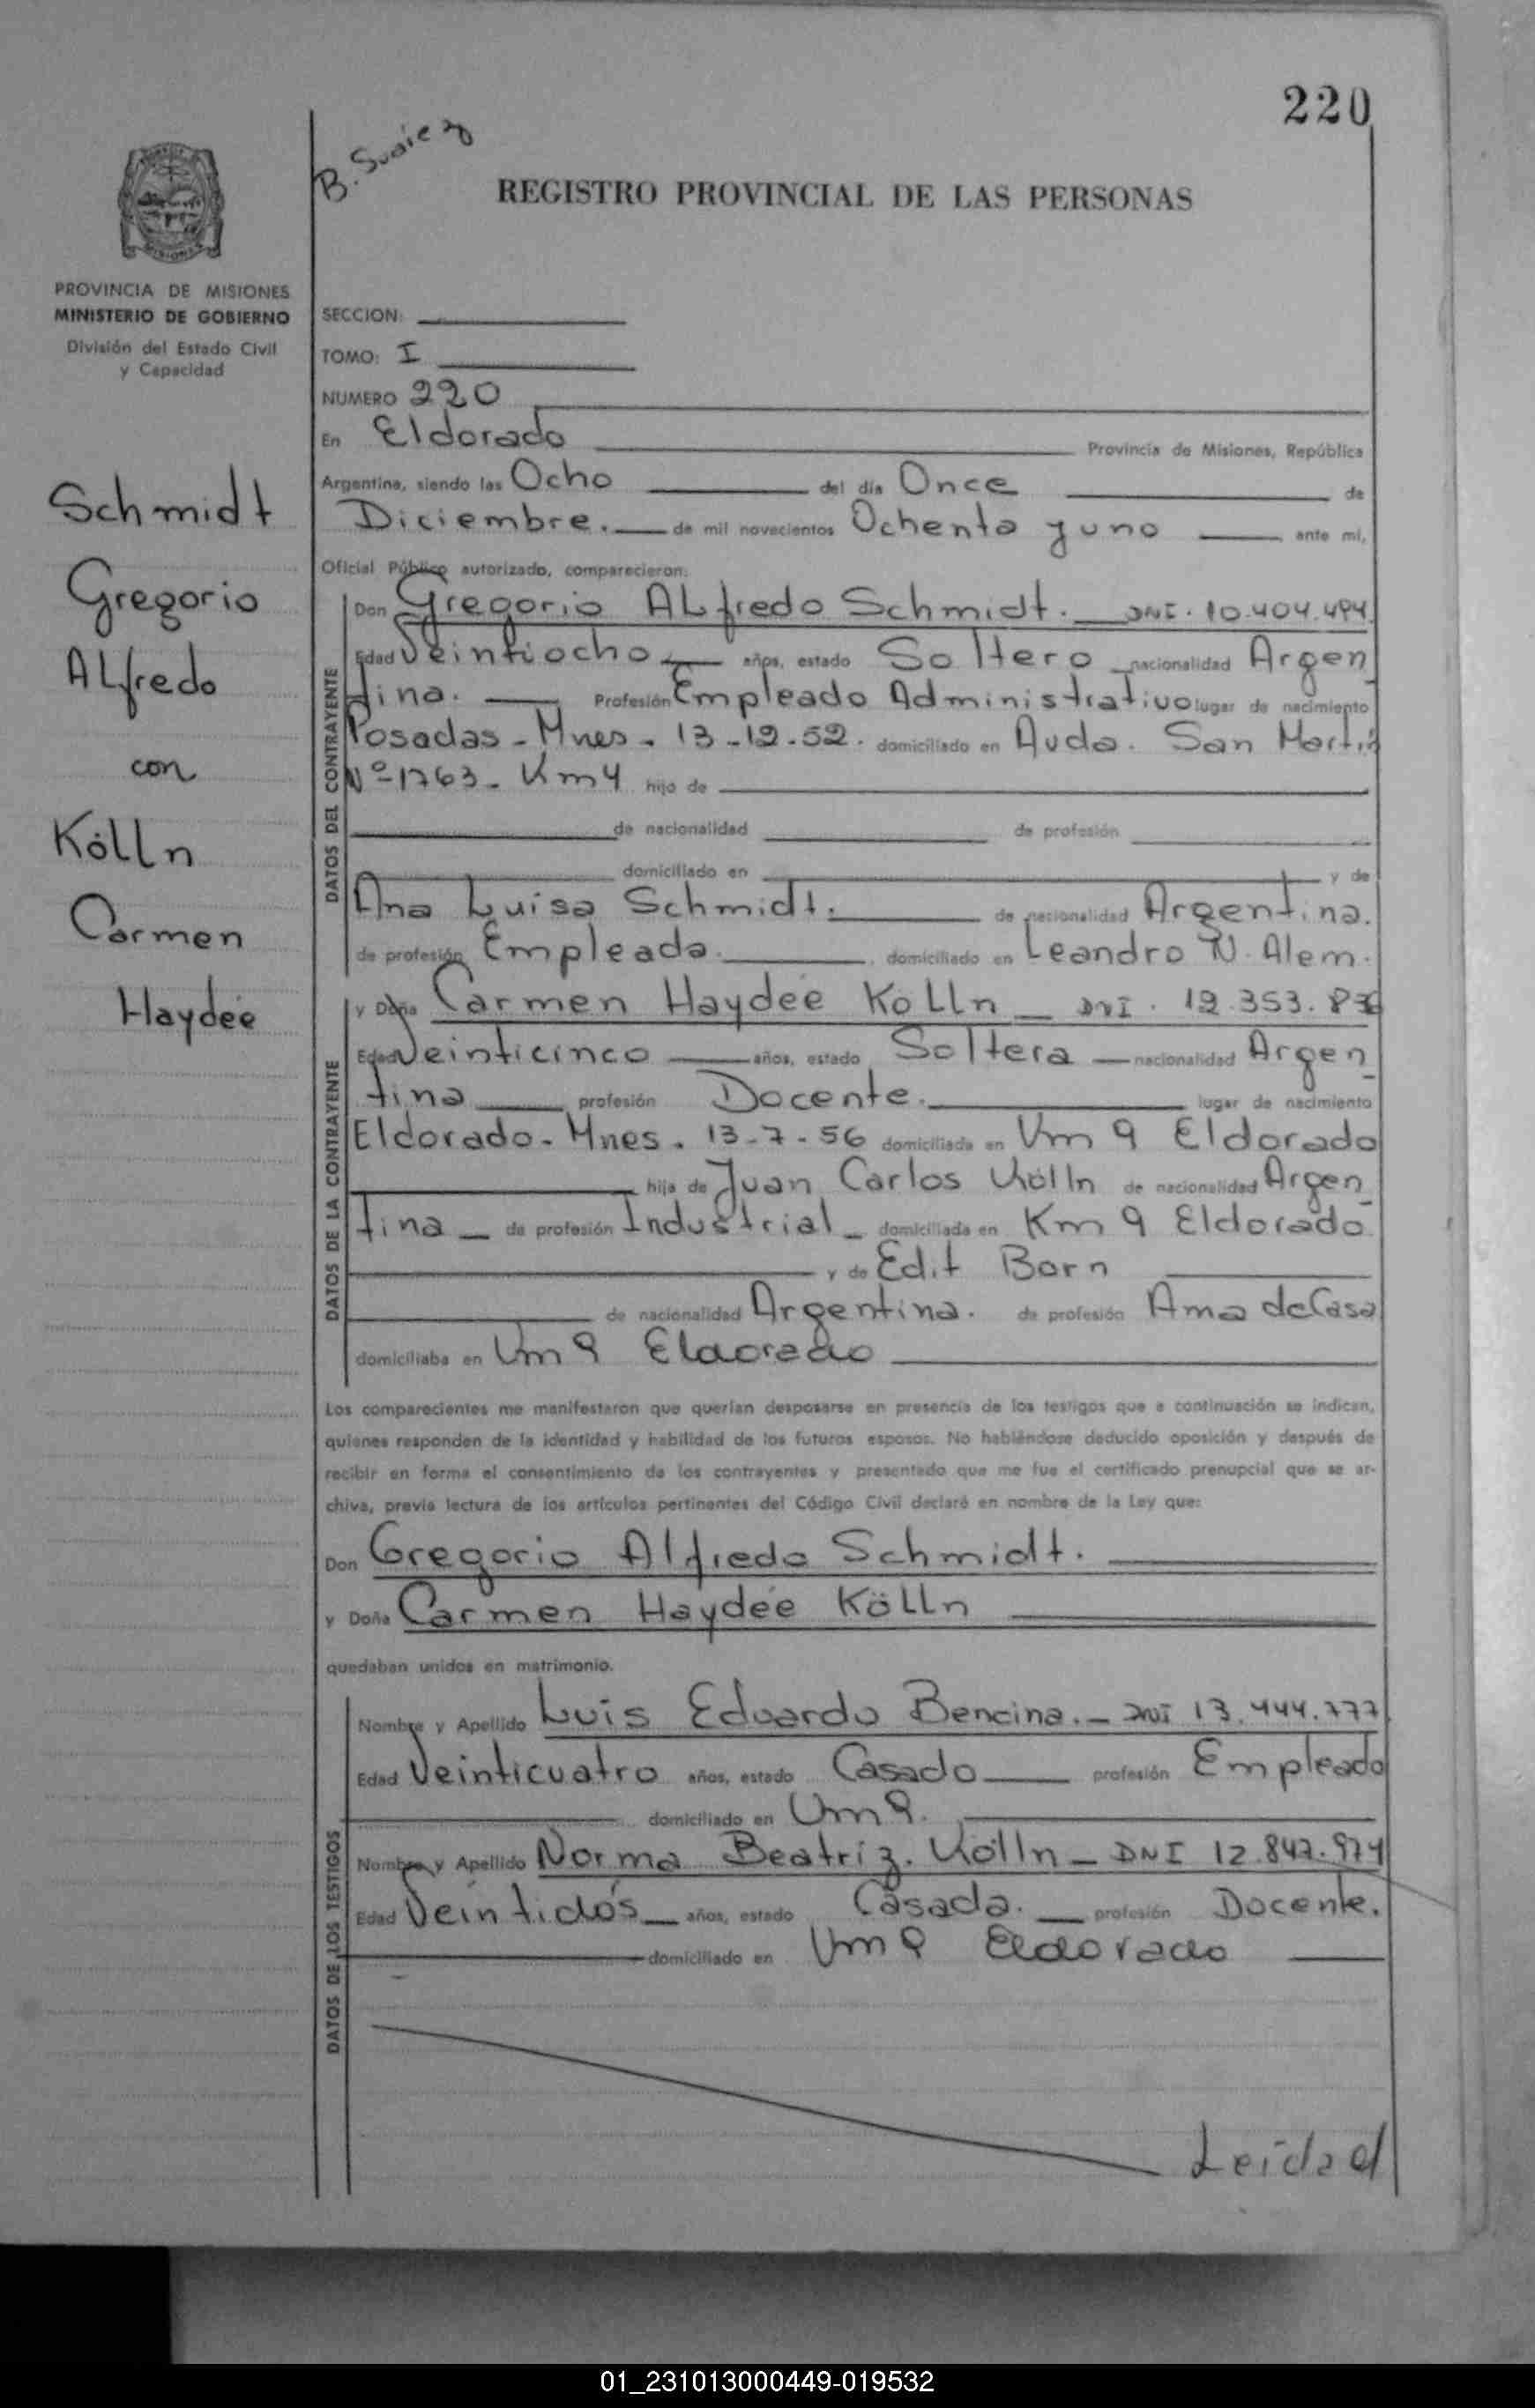 220
B. Suarez
REGISTRO PROVINCIAL DE LAS PERSONAS
MISIONES
PROVINCIA DE MISIONES
MINISTERIO DE GOBIERNO
División del Estado Civil
y Capacidad
Schmidt
Gregorio
ALfredo
con
Kölln
Carmen
Haydeé
SECCION:
TOMO: I
NUMERO 220
En Eldorado Provincia de Misiones, República
Argentina, siendo las Ocho del día Once de
Diciembre. de mil novecientos Ochenta y uno ante mí,
Oficial Público autorizado, comparecieron:
DATOS DEL CONTRAYENTE
Don Gregorio ALfredo Schmidt. DNI. 10.404.494
Edad Veintiocho años, estado Soltero nacionalidad Argen
tina. Profesión Empleado Administrativo lugar de nacimiento
Posadas - Mnes - 13-12-52. domiciliado en Avda. San Martin
Nº 1763 - Km 4 hijo de
de nacionalidad de profesión
domiciliado en y de
Ana Luisa Schmidt. de nacionalidad Argentina.
de profesión Empleada. domiciliado en Leandro N. Alem.
DATOS DE LA CONTRAYENTE
y Doña Carmen Haydeé Kölln DNI. 12.353.836
Edad Veinticinco años, estado Soltera nacionalidad Argen
tina profesión Docente. lugar de nacimiento
Eldorado - Mnes. 13-7-56 domiciliada en Km 9 Eldorado
hija de Juan Carlos Kölln de nacionalidad Argen
tina de profesión Industrial domiciliada en Km 9 Eldorado
y de Edit Born
de nacionalidad Argentina. de profesión Ama de Casa
domiciliaba en Km 9 Eldorado
Los comparecientes me manifestaron que querían desposarse en presencia de los testigos que a continuación se indican,
quienes responden de la identidad y habilidad de los futuros esposos. No habiéndose deducido oposición y después de
recibir en forma el consentimiento de los contrayentes y presentado que me fue el certificado prenupcial que se ar-
chiva, previa lectura de los artículos pertinentes del Código Civil declaré en nombre de la Ley que:
Don Gregorio Alfredo Schmidt.
y Doña Carmen Haydeé Kölln
quedaban unidos en matrimonio.
DATOS DE LOS TESTIGOS
Nombre y Apellido Luis Eduardo Bencina. - DNI 13.444.777
Edad Veinticuatro años, estado Casado profesión Empleado
domiciliado en Km 9.
Nombre y Apellido Norma Beatriz. Kölln - DNI 12.847.974
Edad Veintidós años, estado Casada. profesión Docente.
domiciliado en Km 9 Eldorado
Leida el
01_231013000449-019532